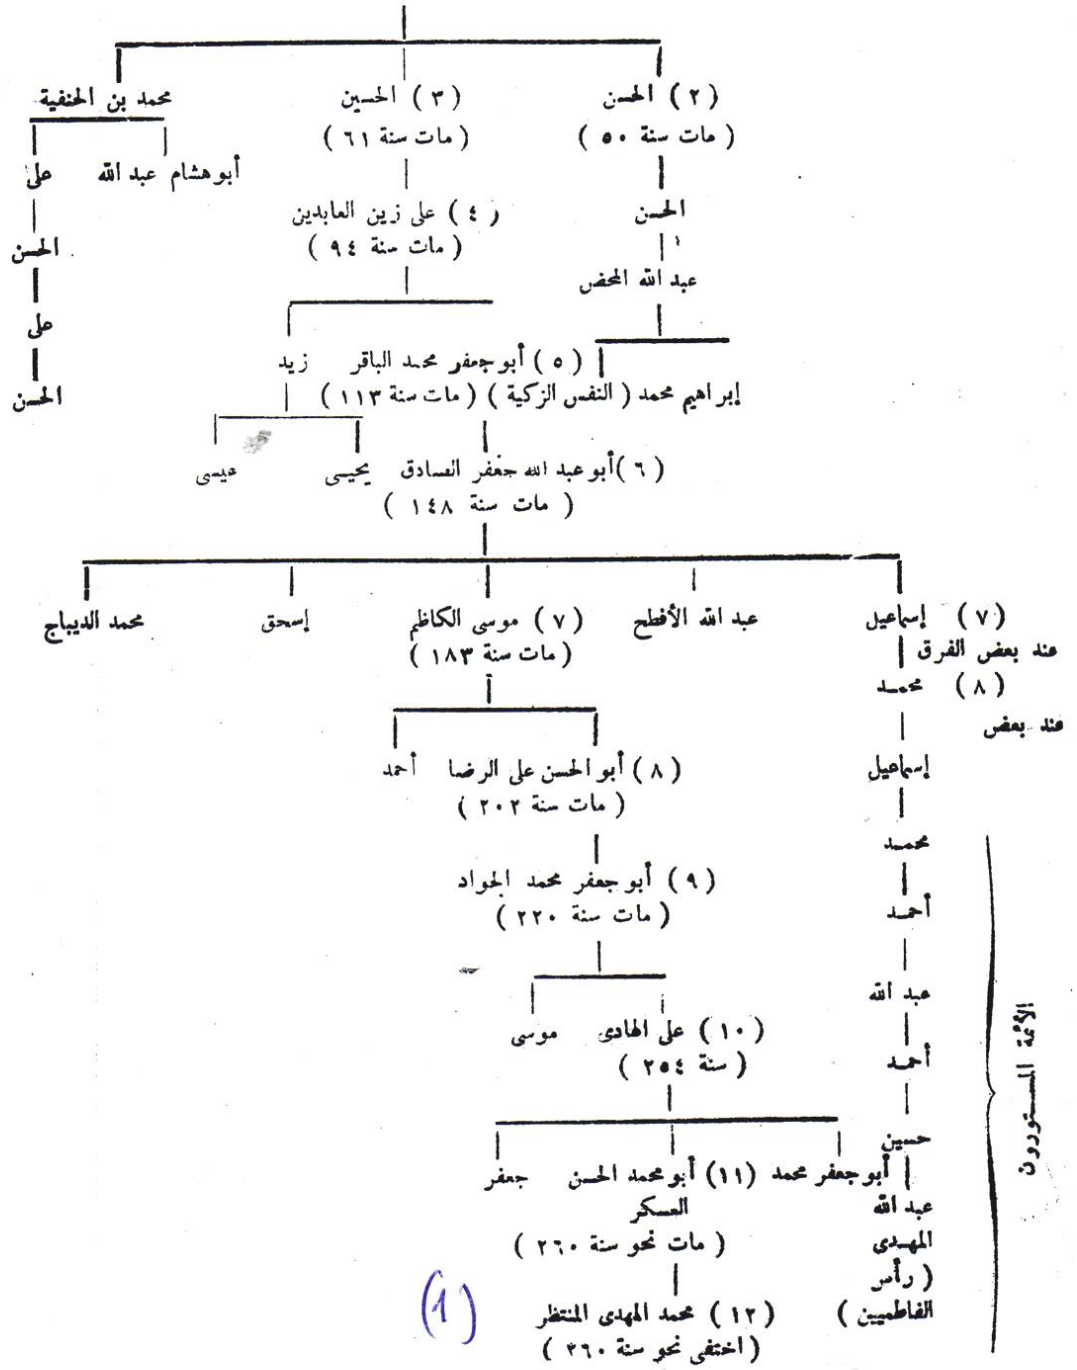 ( ٢ ) الحسن
( مات سنة ٥٠ )
الحسن
عبد الله المحض
إبراهيم محمد ( النفس الزكية )
( ٣ ) الحسين
( مات سنة ٦١ )
( ٤ ) على زين العابدين
( مات سنة ٩٤ )
محمد بن الحنفية
أبو هشام عبد الله
على
الحسن
على
الحسن
( ٥ ) أبو جعفر محمد الباقر
( مات سنة ١١٣ )
زيد
يحيى
عيسى
( ٦ ) أبو عبد الله جعفر الصادق
( مات سنة ١٤٨ )
( ٧ ) إسماعيل
عند بعض الفرق
( ٨ ) محمد
عند بعض
إسماعيل
محمد
أحمد
عبد الله
أحمد
حسين
عبد الله
المهدى
( رأس
الفاطميين )
الأئمة المستورون
عبد الله الأفطح
( ٧ ) موسى الكاظم
( مات سنة ١٨٣ )
إسحق
محمد الديباج
( ٨ ) أبو الحسن على الرضا
( مات سنة ٢٠٢ )
أحمد
( ٩ ) أبو جعفر محمد الجواد
( مات سنة ٢٢٠ )
( ١٠ ) على الهادى
( سنة ٢٥٤ )
موسى
أبو جعفر محمد
( ١١ ) أبو محمد الحسن
العسكر
( مات نحو سنة ٢٦٠ )
جعفر
( ١٢ ) محمد المهدى المنتظر
( اختفى نحو سنة ٢٦٠ )
(1)